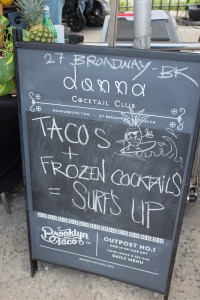 27 BROADWAY-BK
donna
COCKTAIL CLUB
TACOS
+
FROZEN COCKTAILS
= SURF'S UP
Brooklyn
Taco Co.
OUTPOST NO.1
DAILY MENU